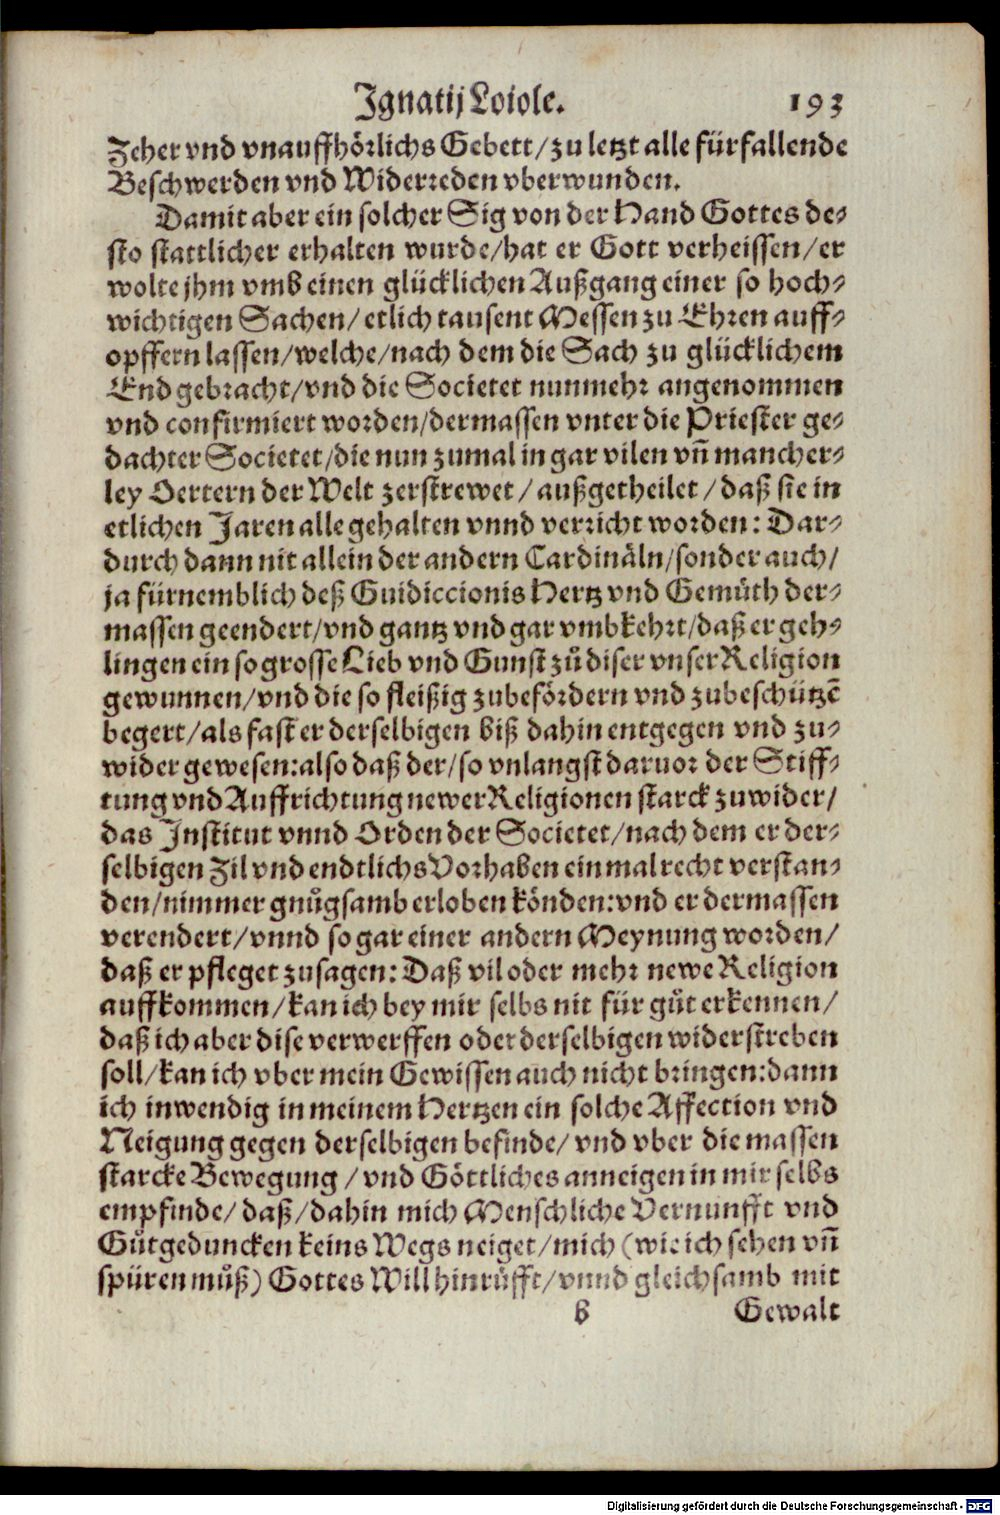 Ignatij Loiole. 193
Zeher vnd vnauffhörlichs Gebett/zu letzt alle fürfallende
Beschwerden vnd Widerreden vberwunden.
Damit aber ein solcher Sig von der Hand Gottes de⸗
sto stattlicher erhalten wurde/hat er Gott verheissen/er
wolte jhm vmb einen glücklichen Außgang einer so hoch⸗
wichtigen Sachen/etlich tausent Messen zu Ehren auff⸗
opffern lassen/welche/nach dem die Sach zu glücklichem
End gebracht/vnd die Societet nunmehr angenommen
vnd confirmiert worden/dermassen vnter die Priester ge⸗
dachter Societet/die nun zumal in gar vilen vñ mancher⸗
ley Oertern der Welt zerstrewet/außgetheilet/daß sie in
etlichen Jaren alle gehalten vnnd verricht worden: Dar⸗
durch dann nit allein der andern Cardinäln/sonder auch/
ja fürnemblich deß Guidiccionis Hertz vnd Gemüth der⸗
massen geendert/vnd gantz vnd gar vmbkehrt/daß er geh⸗
lingen ein so grosse Lieb vnd Gunst zů diser vnser Religion
gewunnen/vnd die so fleißig zubefördern vnd zubeschützẽ
begert/als fast er derselbigen biß dahin entgegen vnd zu⸗
wider gewesen:also daß der/so vnlangst daruor der Stiff⸗
tung vnd Auffrichtung newer Religionen starck zuwider/
das Institut vnnd Orden der Societet/nach dem er der⸗
selbigen Zil vnd endtlichs Vorhaben einmal recht verstan⸗
den/nimmer gnůgsamb erloben könden:vnd er dermassen
verendert/vnnd so gar einer andern Meynung worden/
daß er pfleget zusagen: Daß vil oder mehr newe Religion
auffkommen/kan ich bey mir selbs nit für gůt erkennen/
daß ich aber dise verwerffen oder derselbigen widerstreben
soll/kan ich vber mein Gewissen auch nicht bringen:dann
ich inwendig in meinem Hertzen ein solche Affection vnd
Neigung gegen derselbigen befinde/vnd vber die massen
starcke Bewegung/vnd Göttliches anneigen in mir selbs
empfinde/daß/dahin mich Menschliche Vernunfft vnd
Gůtgeduncken keins Wegs neiget/mich (wie ich sehen vñ
spüren můß) Gottes Will hinrůfft/vnnd gleichsamb mit
b Gewalt
Digitalisierung gefördert durch die Deutsche Forschungsgemeinschaft - DFG